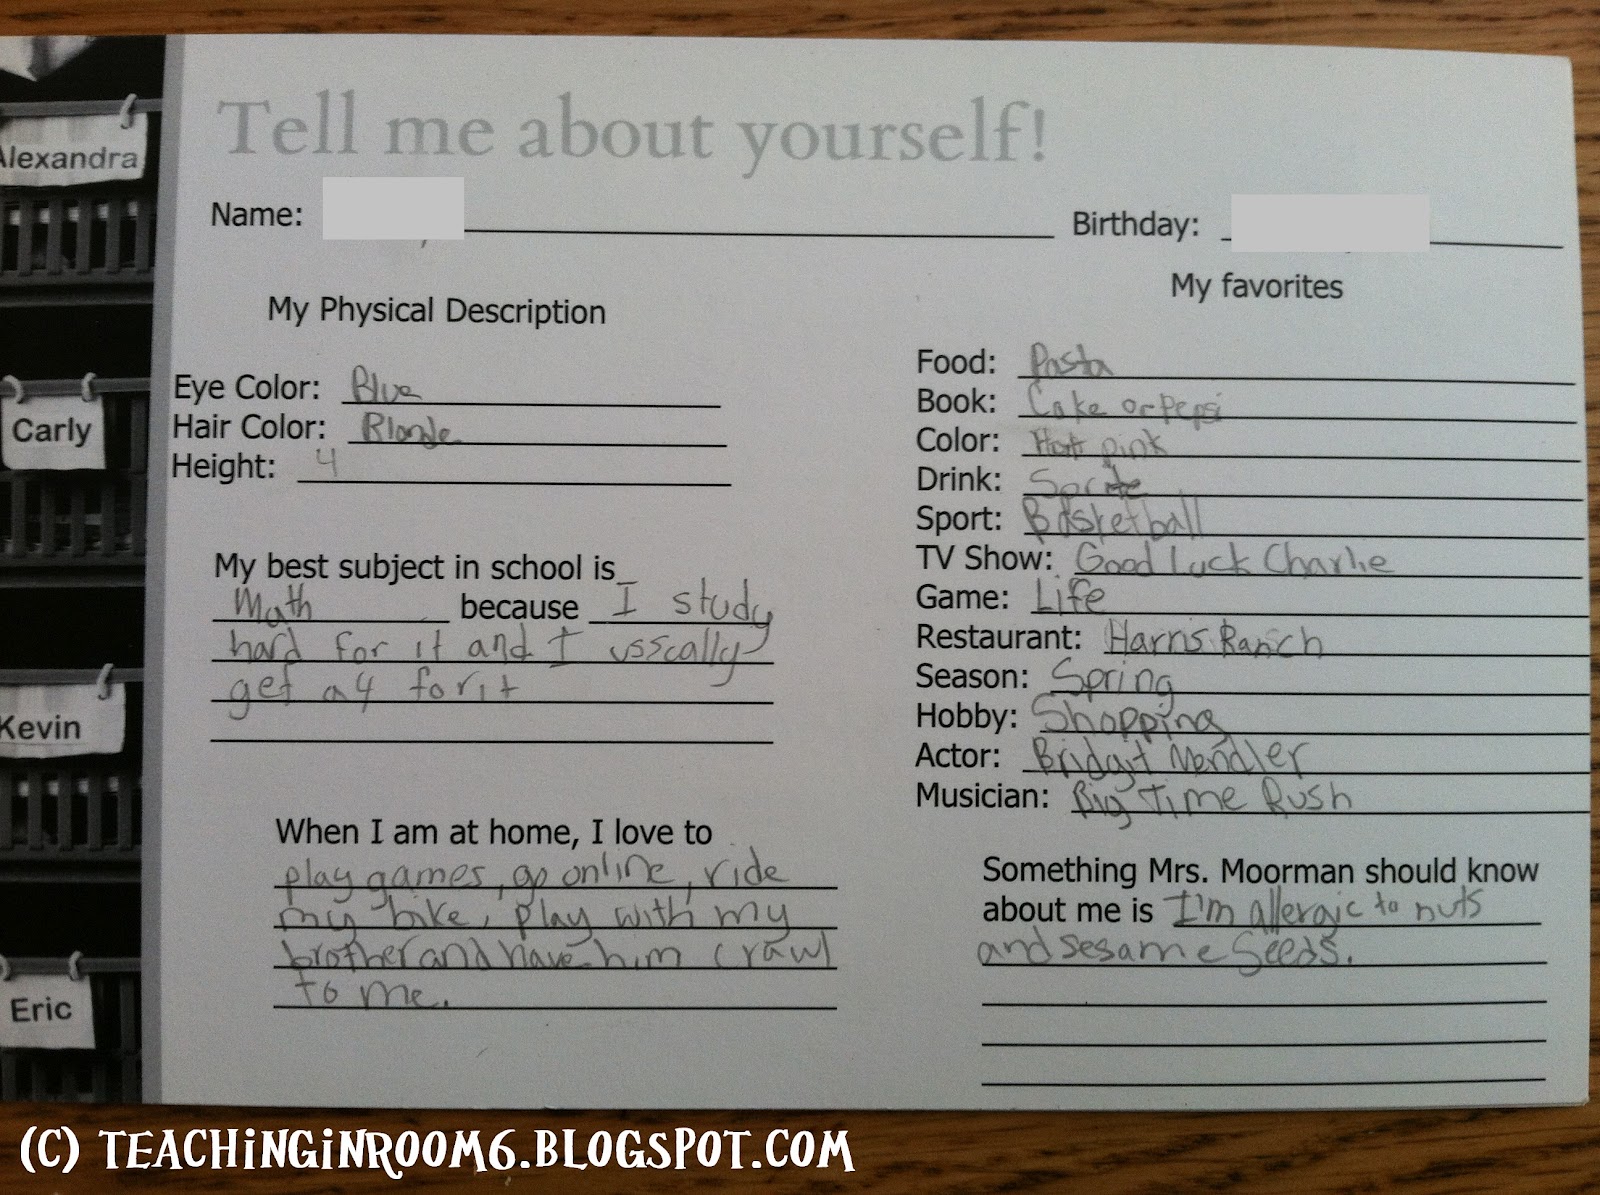 Tell me about yourself!
Name:
Birthday:
My Physical Description
Eye Color: Blue
Hair Color: Blonde
Height: 4
My best subject in school is
Math because I study
hard for it and I usscally
get a 4 for it
When I am at home, I love to
play games, go online, ride
my bike, play with my
brother and have him crawl
to me.
My favorites
Food: Pasta
Book: Coke or Pepsi
Color: Hot pink
Drink: Sprite
Sport: Basketball
TV Show: Good Luck Charlie
Game: Life
Restaurant: Harris Ranch
Season: Spring
Hobby: Shopping
Actor: Bridgit Mendler
Musician: Big Time Rush
Something Mrs. Moorman should know
about me is I'm allergic to nuts
and sesame seeds.
Alexandra
Carly
Kevin
Eric
(C) TEACHINGINROOM6.BLOGSPOT.COM